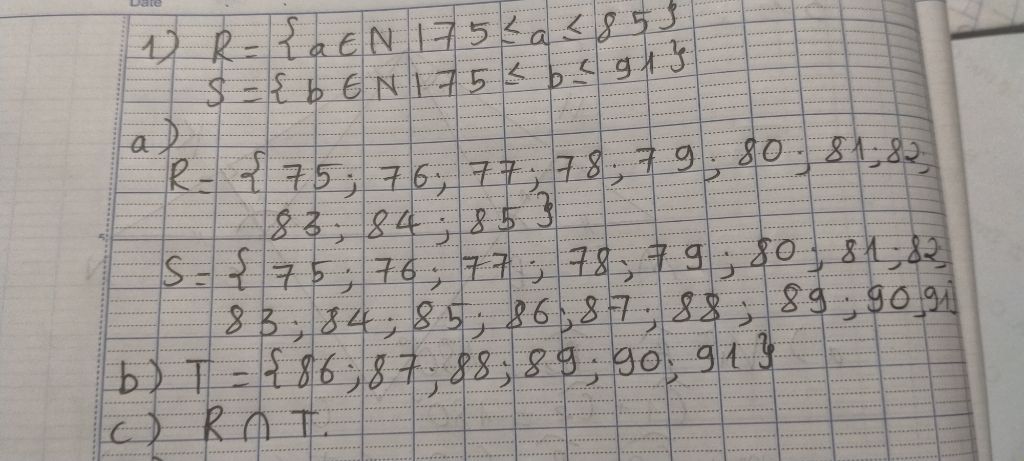 Date
1) R = {a ∈ N | 75 ≤ a ≤ 85}
S = {b ∈ N | 75 ≤ b ≤ 91}
a)
R = { 75; 76; 77; 78; 79; 80; 81; 82,
83; 84; 85}
S = { 75; 76; 77; 78; 79; 80; 81; 82,
83; 84; 85; 86; 87; 88; 89; 90, 91}
b) T = {86; 87; 88; 89; 90; 91}
c) R ∩ T.